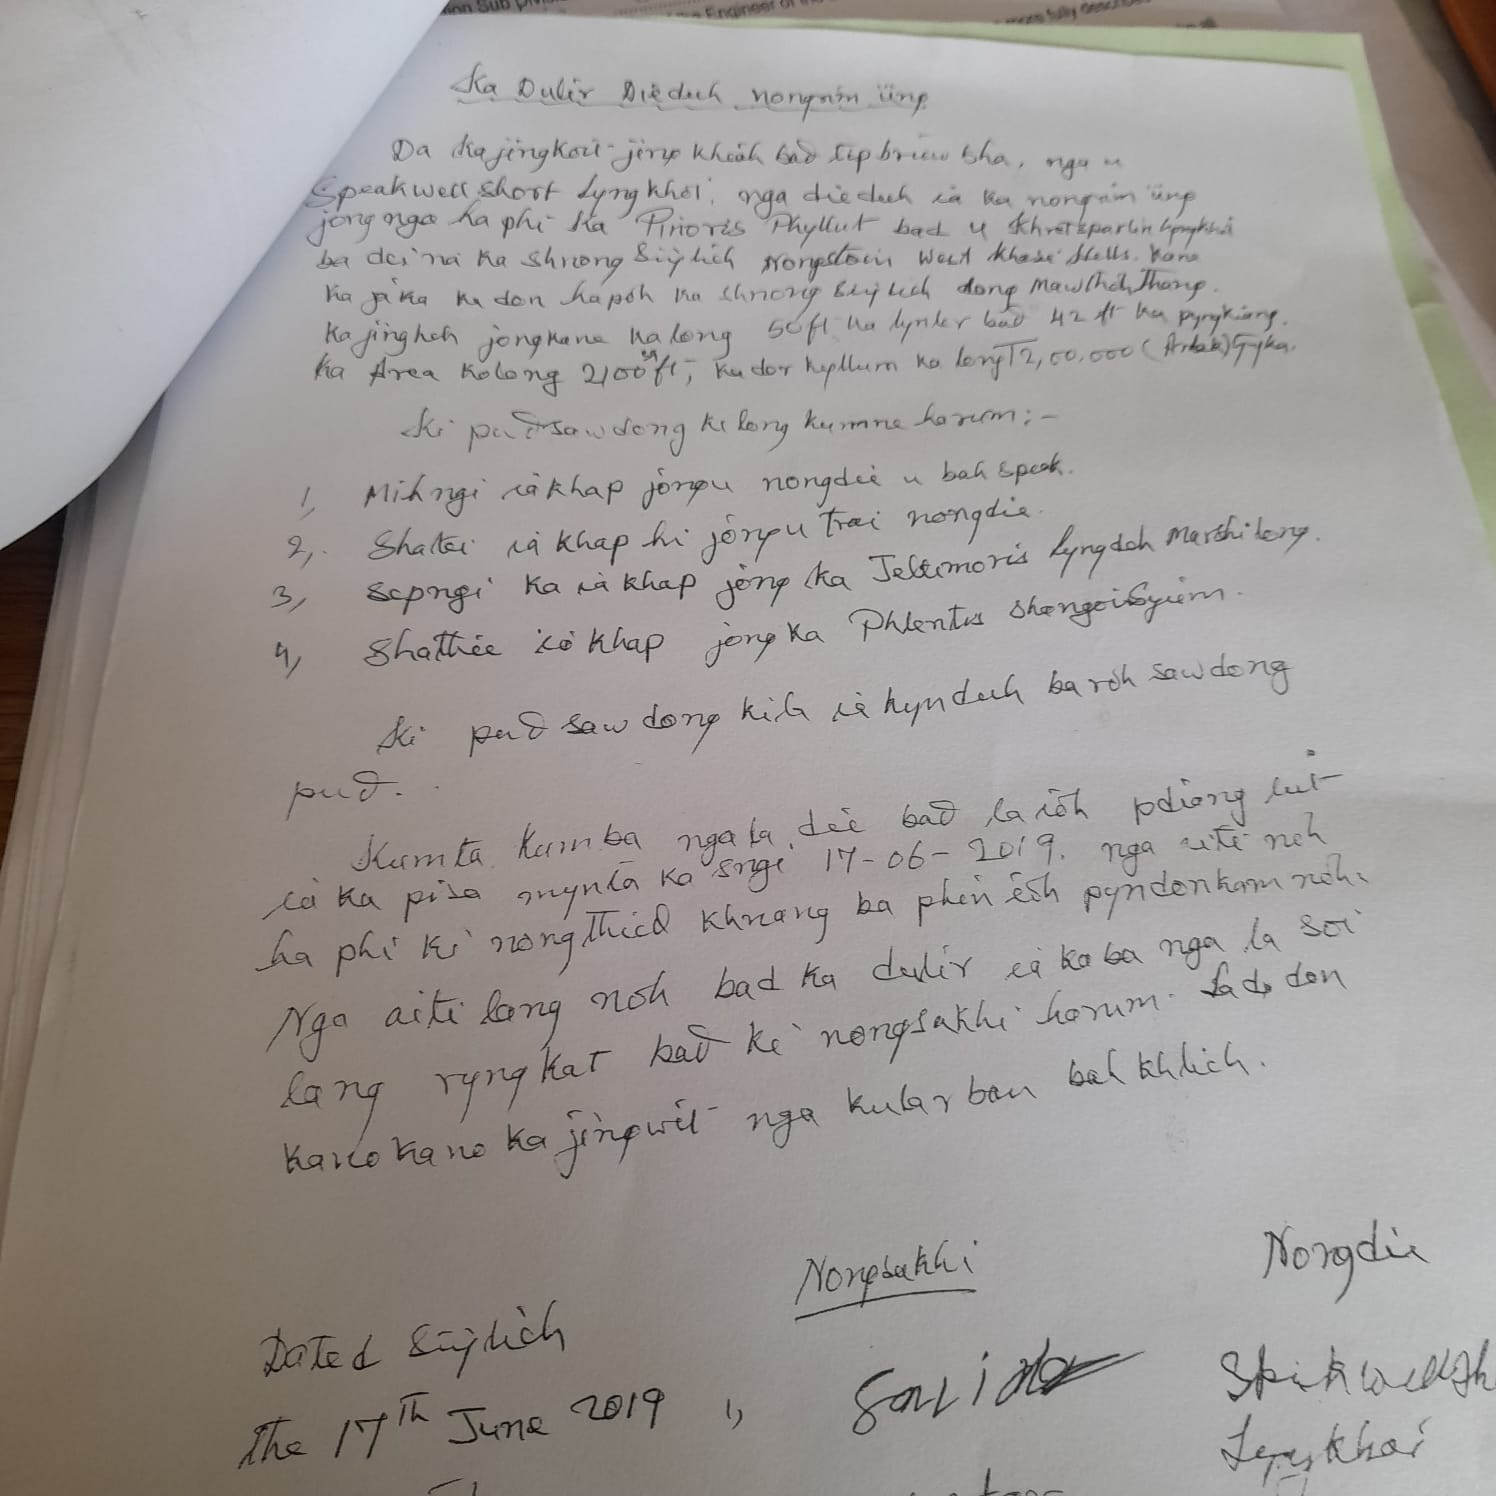 Engineer of the
more fully described
Ka Dulir Diëduh nongrim ïing
Da Kajingkoit-jing khiah bad tip briew bha, nga u
Speakwell Short Lyngkhoi, nga dieduh ia ka nongrim ïing
jong nga ha phi Ka Prioris Phyllut bad u Khrotsparlin
ba dei na Ka Shnong Siejlieh Nongstoin West Khasi Hills. Kane
Ka jaka ka don hapoh ka shnong Siejlieh dong Mawthoh Thang.
Kajingheh jongkane ka long 50ft ka lynter bad 42 ft ka pyngkiang.
Ka Area Kalong 2100 sq ft, Ka dor kyllum ka long ₹2,00,000 (Arlak) Tyka.
Ki pud sawdong ki long kumne harum:-
1, Mihngi iakhap jong u nongdie u bah Speak.
2, Shatei ia khap hi jong u trai nongdie.
3, Sepngi Ka ia khap jong Ka Jestimoris Lyngdoh Marshilong.
4, Shathie ia khap jong Ka Phlentis Shongoi Syiem.
Ki pud sawdong kila ia kynduh baroh sawdong
pud.
Kumta kumba nga la die bad la ioh pdiang lut
ia ka pisa mynta ka sngi 17-06-2019. nga aiti noh
ha phi ki nongthied khnang ba phin ioh pyndonkam noh.
Nga aiti lang noh bad ka dulir ia kaba nga la soi
lang ryngkat bad ki nongsakhi harum. Lada don
kano kano ka jingwit nga kular ban bah khlieh.
Nongsakhi
Nongdie
Dated Siejlieh
the 17Th June 2019
1,
Spikwell Sh
Lyngkhoi